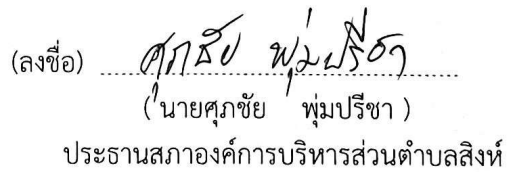 (ลงชื่อ) ศุภชัย พุ่มปรีชา
( นายศุภชัย พุ่มปรีชา )
ประธานสภาองค์การบริหารส่วนตำบลสิงห์